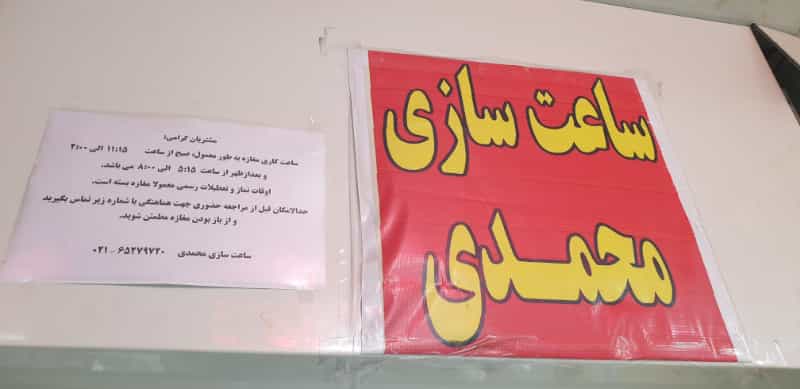 ساعت سازی
محمدی
مشتریان گرامی:
ساعت کاری مغازه به طور معمول، صبح از ساعت ۱۱:۱۵ الی ۲:۰۰
و بعدازظهر از ساعت ۵:۱۵ الی ۸:۰۰ می باشد.
اوقات نماز و تعطیلات رسمی معمولا مغازه بسته است.
حدالامکان قبل از مراجعه حضوری جهت هماهنگی با شماره زیر تماس بگیرید
و از باز بودن مغازه مطمئن شوید.
ساعت سازی محمدی ۶۵۲۷۹۷۲۰ - ۰۲۱